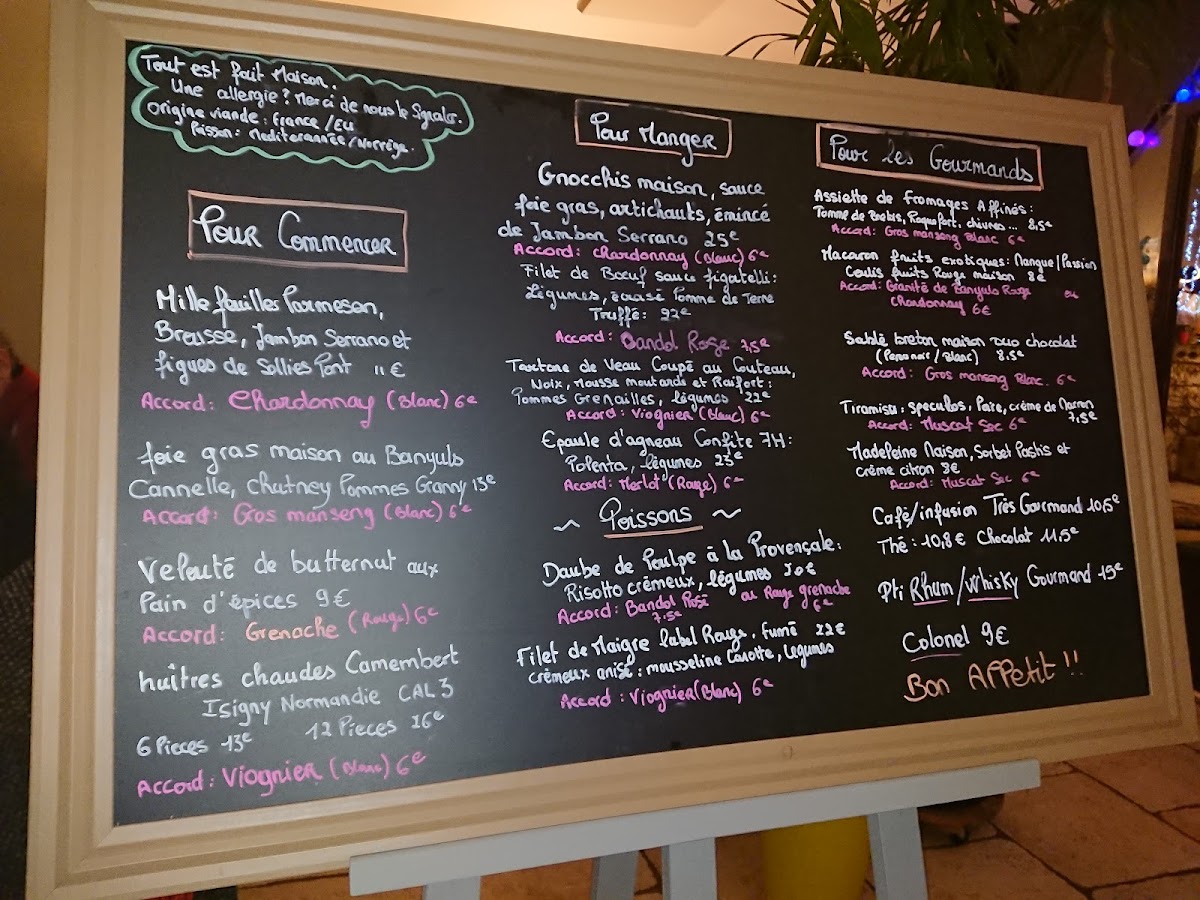 Tout est fait Maison.
Une allergie? Merci de nous le Signaler.
Origine viande: France / EU
Poisson: Mediterannée / Norvège.
Pour Commencer
Mille feuilles Parmesan,
Brousse, Jambon Serrano et
figues de Sollies Pont 11€
Accord: Chardonnay (Blanc) 6€
foie gras maison au Banyuls
Cannelle, Chutney Pommes Granny 13€
Accord: Gros manseng (Blanc) 6€
Velouté de butternut aux
Pain d'épices 9€
Accord: Grenache (Rouge) 6€
huîtres chaudes Camembert
Isigny Normandie CAL 3
6 Pieces 13€ 12 Pieces 26€
Accord: Viognier (Blanc) 6€
Pour Manger
Gnocchis maison, sauce
foie gras, artichauts, émincé
de Jambon Serrano 25€
Accord: chardonnay (Blanc) 6€
Filet de Bœuf sauce figatelli:
Légumes, écrasé Pomme de Terre
Truffé:
Accord: Bandol Rouge 7,5€
de Veau Coupé au Couteau,
Noix, Mousse moutarde et Raifort:
Pommes Grenailles, légumes 22€
Accord: Viognier (Blanc) 6€
Epaule d'agneau Confite 7H:
Polenta, légumes 23€
Accord: Merlot (Rouge) 6€
~ Poissons ~
Daube de Poulpe à la Provençale:
Risotto crémeux, légumes
Accord: Bandol Rosé ou Rouge grenache
7.5€ 6€
Filet de Maigre label Rouge, fumé 22€
Crémeux anisé: mousseline Carotte, légumes
Accord: Viognier (Blanc) 6€
Pour les Gourmands
Assiette de fromages Affinés:
Tomme de Brebis, Roquefort, chèvres... 8,5€
Accord: Gros manseng Blanc 6€
Macaron fruits exotiques: Mangue / Passion
Coulis fruits Rouge maison 8€
Accord: Granité de Banyuls Rouge ou
Chardonnay 6€
Sablé breton maison Duo chocolat
(Noir / Blanc) 8.5€
Accord: Gros manseng Blanc. 6€
Tiramisu: speculos, Poire, crème de Marron
Accord: Muscat Sec 6€ 7,5€
Madeleine Maison, Sorbet Pastis et
crème citron 8€
Accord: Muscat Sec 6€
Café/infusion Très Gourmand 10,5€
Thé: 10,8€ Chocolat 11,5€
Pti Rhum / Whisky Gourmand 15€
Colonel 9€
Bon Appetit !!